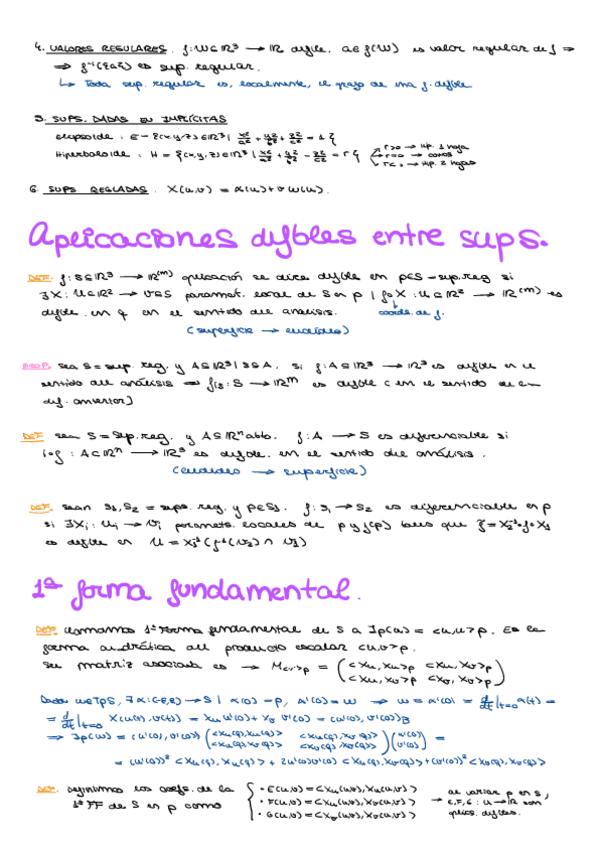 4. VALORES REGULARES. f: W⊆ℝ³ → ℝ difble. a∈f(W) es valor regular de f ⇒
⇒ f⁻¹({a}) es sup. regular.
↳ Toda sup. regular es, localmente, el grafo de una f. difble
5. SUPS. DADAS EN IMPLÍCITAS
elipsoide: E = {(x,y,z)∈ℝ³ | x²/a² + y²/b² + z²/c² = 1}
Hiperboloide: H = {(x,y,z)∈ℝ³ | x²/a² + y²/b² - z²/c² = r} r>0 → Hip. 1 hoja
r=0 → conos
r<0 → Hip. 2 hojas
6. SUPS REGLADAS. X(u,v) = α(u)+v w(u).
Aplicaciones difbles entre sups.
DEF. f: S⊆ℝ³ → ℝ(m) aplicación se dice difble en p∈S = sup. reg si
∃ X: U⊆ℝ² → V⊆S paramet. local de S en p | f∘X: U⊆ℝ² → ℝ(m) es
difble. en q en el sentido del análisis. coords. de f.
(superficie → euclídeo)
PROP. sea S = sup. reg. y A⊆ℝ³ | S⊆A. si f: A⊆ℝ³ → ℝ³ es difble en el
sentido del análisis ⇒ f|s: S → ℝᵐ es difble [en el sentido de la
def. anterior]
DEF. sean S = sup. reg. y A⊆ℝⁿ abto. f: A → S es diferenciable si
i∘f: A⊂ℝⁿ → ℝ³ es difble. en el sentido del análisis.
(euclídeo → superficie)
DEF. sean S₁, S₂ = sups. reg. y p∈S₁. f: S₁ → S₂ es diferenciable en p
si ∃Xᵢ: Uᵢ → Vᵢ paramets. locales de p y f(p) tales que f̃ = X₂⁻¹∘f∘X₁
es difble en U = X₁⁻¹(f⁻¹(V₂) ∩ V₁)
1ª forma fundamental.
DEF. llamamos 1ª forma fundamental de S a Ip(u) = <u,u>p. Es la
forma cuadrática del producto escalar <u,v>p.
Su matriz asociada es → M<,>p = (<Xu,Xu>p <Xu,Xv>p)
(<Xu,Xv>p <Xv,Xv>p)
Dado w∈TpS, ∃α: (-ε,ε) → S | α(0) = p, α'(0) = w ⇒ w = α'(0) = d/dt|t=0 α(t) =
= d/dt|t=0 X(u(t),v(t)) = Xu u'(0) + Xv v'(0) = (u'(0), v'(0))B
⇒ Ip(w) = (u'(0), v'(0)) (<Xu(q),Xu(q)> <Xu(q),Xv(q)>) (u'(0)) =
(<Xu(q),Xv(q)> <Xv(q),Xv(q)>) (v'(0))
= (u'(0))² <Xu(q),Xu(q)> + 2u'(0)v'(0) <Xu(q),Xv(q)> + (v'(0))² <Xv(q),Xv(q)>
DEF. definimos los coefs. de la · E(u,v) = <Xu(u,v), Xu(u,v)> al variar p en S,
1ª FF de S en p como · F(u,v) = <Xu(u,v), Xv(u,v)> → E,F,G: U → ℝ son
· G(u,v) = <Xv(u,v), Xv(u,v)> aplics. difbles.